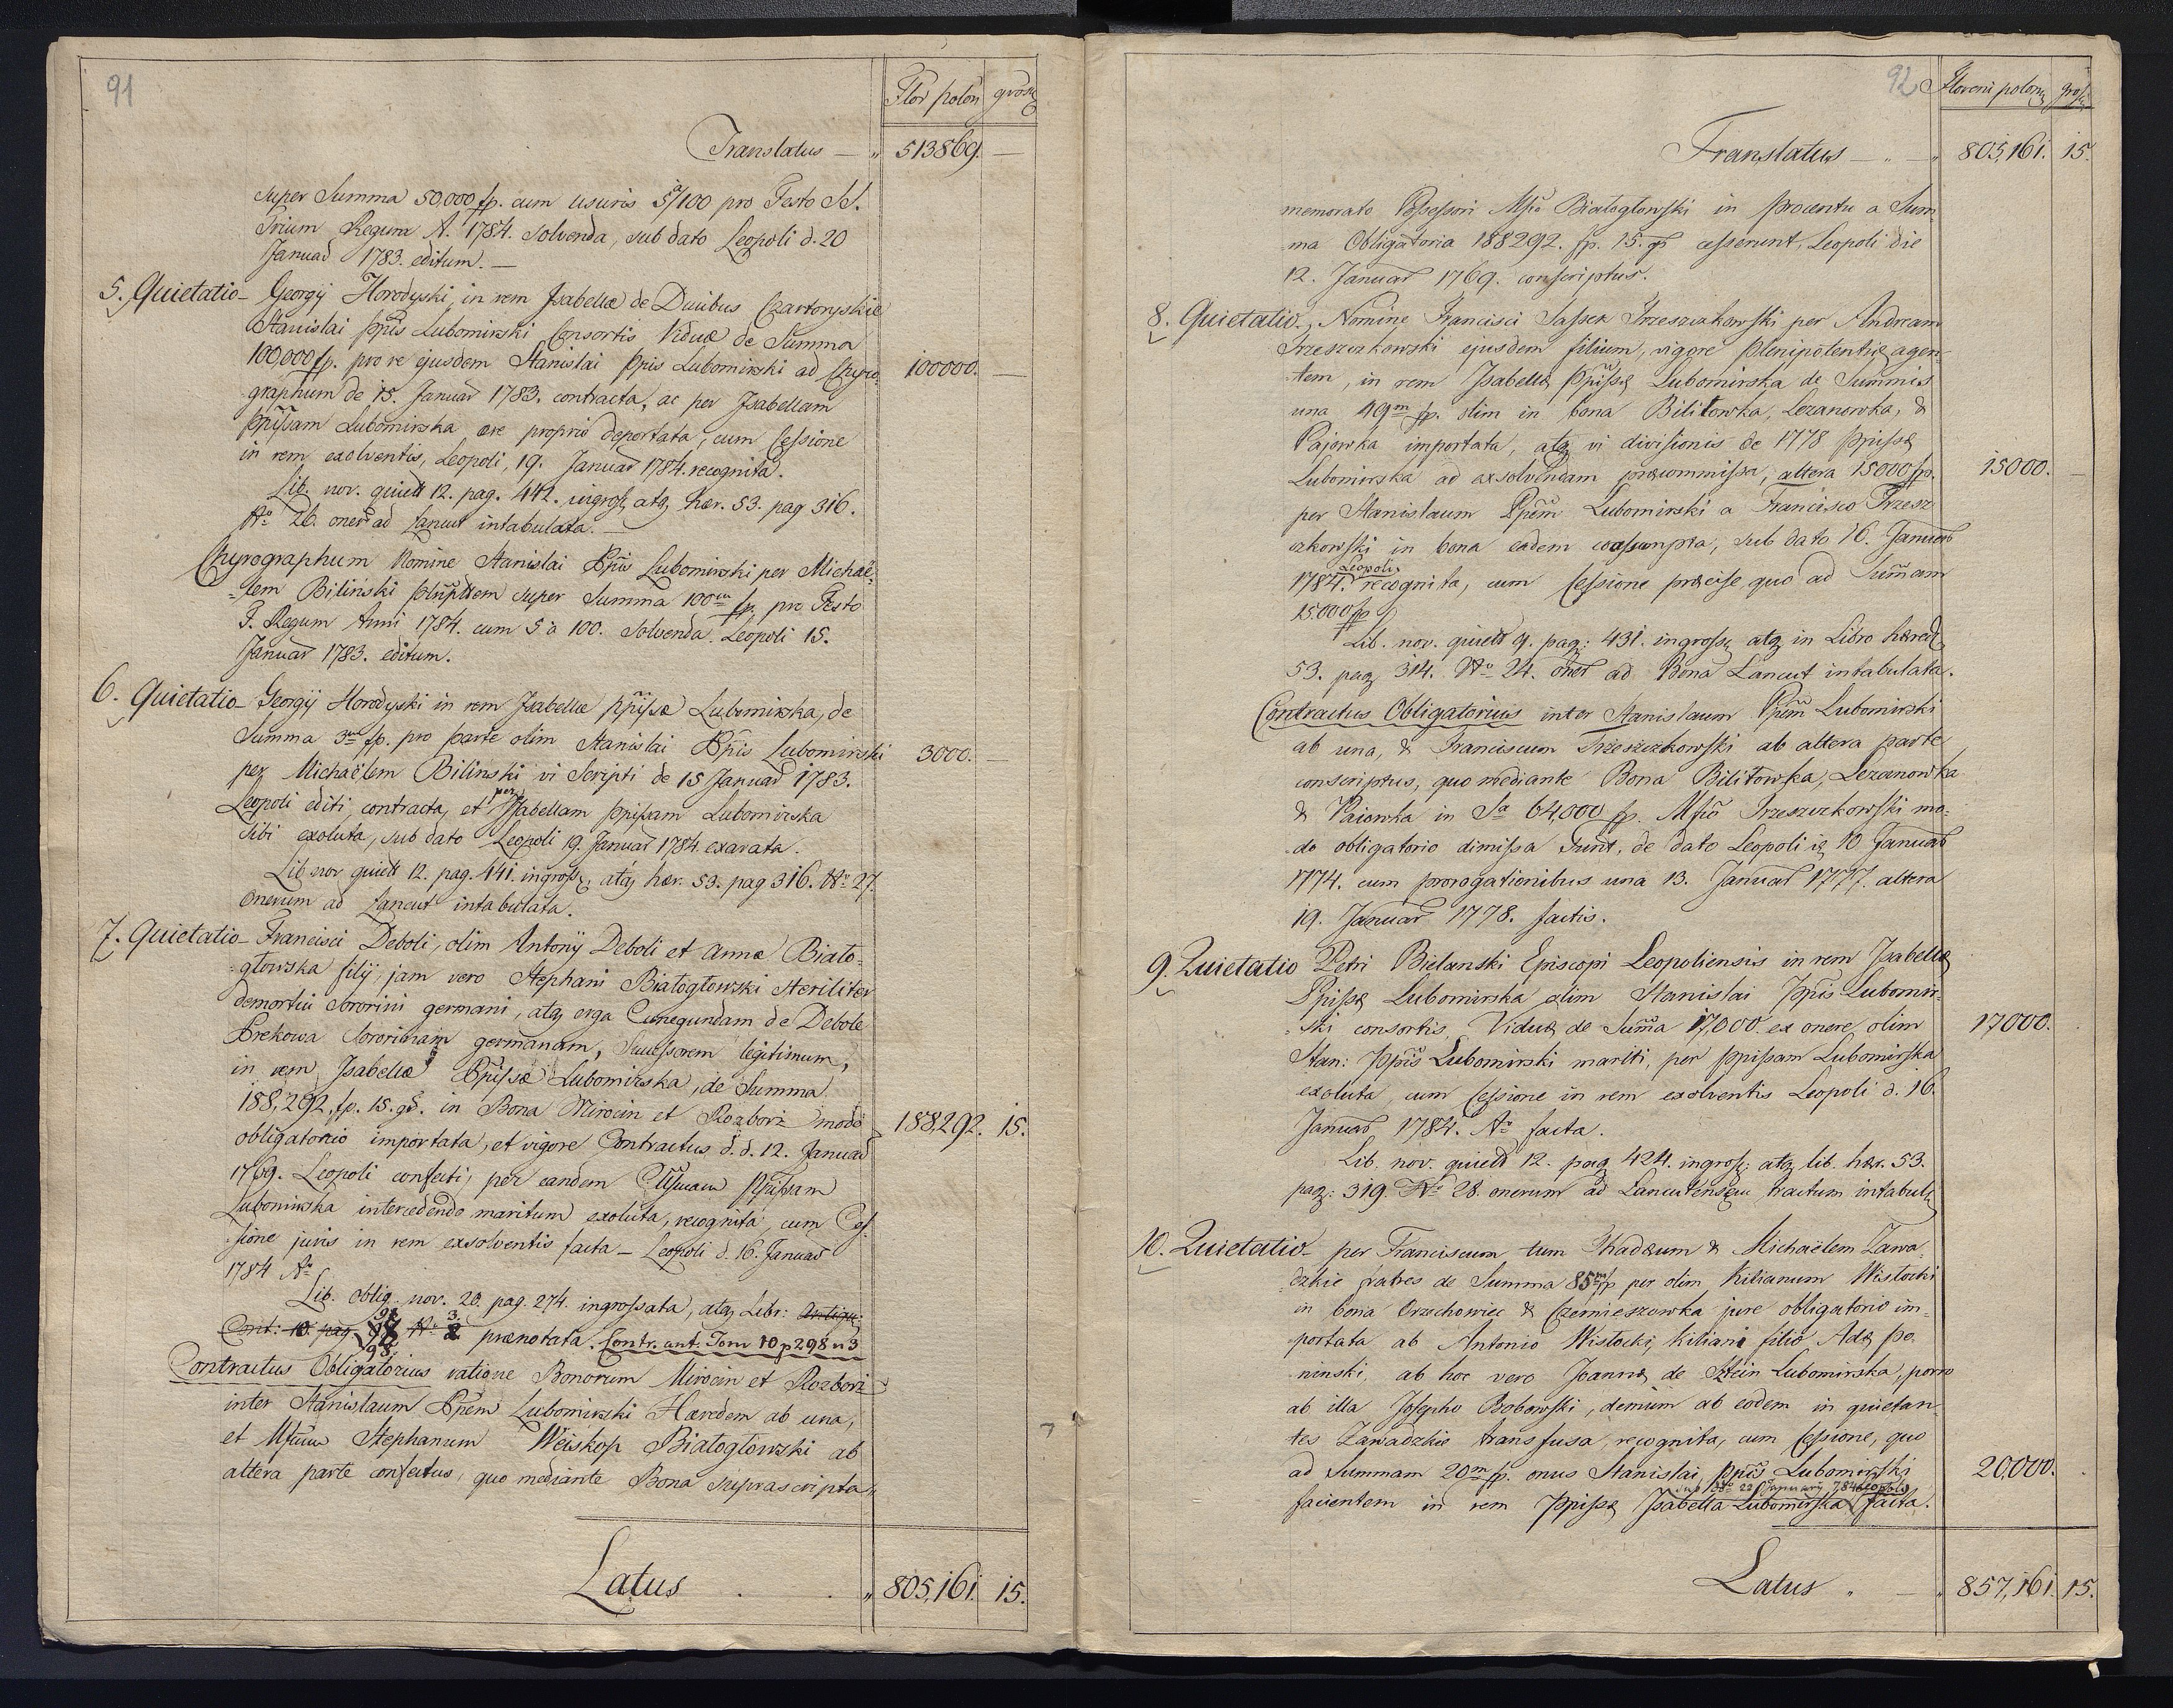 91
Flor polon grosz
Translatus — „ 513869. —
super Summa 50,000 fp. cum usuris 5 a/100 pro Festo SS.
Trium Regum A. 1784. solvenda, sub dato Leopoli d. 20
Januar 1783. editum. —
5. Quietatio — Georgij Horodyski, in rem Isabellæ de Ducibus Czartoryskie
Stanislai ppis Lubomirski Consortis Viduæ de Summa
100,000 fp. pro re ejusdem Stanislai Ppis Lubomirski ad Chyro- 100000. —
graphum de 15. Januar 1783. contracta, ac per Isabellam
ppissam Lubomirska ære proprio deportata, cum Cessione
in rem exolventis, Leopoli, 19. Januar 1784. recognita.
Lib. nov. quiett 12. pag. 442. ingross, atq hær. 53. pag 316.
No 26. oner ad Łancut intabulata. —
Chyrographum Nomine Stanislai Ppis Lubomirski per Michaë-
lem Biliński plnpttem super Summa 100m fp. pro Festo
T. Regum Anni 1784. cum 5 a 100. solvenda. Leopoli 15.
Januar 1783. editum.
6. Quietatio — Georgij Horodyski in rem Isabellæ ppissæ Lubomirska, de
Summa 3m fp. pro parte olim Stanislai Ppis Lubomirski 3000. —
per Michaëlem Bilinski vi Scripti de 15 Januar 1783.
Leopoli editi contracta, et per Isabellam ppissam Lubomirska
sibi exoluta, sub dato Leopoli 19. Januar 1784. exarata.
Lib nov quiett 12. pag. 441. ingross, atq hær. 53. pag 316. No 27.
Onerum ad Łancut intabulata.
7. Quietatio — Francisci Deboli, olim Antonij Deboli et Annæ Biało-
głowska filij, jam vero Stephani Białogłowski steriliter
demortui sororini germani, atq erga Cunegundam de Debole
Brekowa sororinam germanam, Successorem legitimum,
in rem Isabellæ Ppissæ Lubomirska, de Summa
188,292. fp. 15. gr. in Bona Mirocin et Rozborz modo 188,292. 15.
obligatorio importata, et vigore Contractus d. d. 12. Januar
1769. Leopoli confecti, per eandem Ppissam
Lubomirska intercedendo maritum exoluta, recognita, cum Ces-
sione juris in rem exsolventis facta — Leopoli d. 16. Januar
1784 Ao
Lib. oblig. nov. 20. pag. 274. ingrossata, atq Libr: Antiqu:
Cont: 10. pag. 98 No 3. prænotata. Contr. ant. Tom 10 p 298 n 3
Contractus Obligatorius ratione Bonorum Mirocin et Rozborz
inter Stanislaum Ppem Lubomirski Hæredem ab una,
et Mfcum Stephanum Weiskop Białogłowski ab
altera parte confectus, quo mediante Bona suprascripta „
Latus . . „ 805,161. 15.
92
Floreni polon gross
Translatus — „ — „ 805,161. 15.
memorato Possessori Mfco Białogłowski in procentu a Sum
ma Obligatoria 188292. fp. 15. gr cesserunt, Leopoli die
12. Januar 1769. conscriptus.
8. Quietatio — Nomine Francisci Jassek Trzeszczkowski per Andream
Trzeszczkowski ejusdem filium, vigore plenipotentiæ agen-
tem, in rem Isabellæ Ppissæ Lubomirska de Summis
una 49m fp. olim in bona Bilitowka, Lezanowka, &
Pajowka importata, atq vi divisionis de 1778 ppissæ
Lubomirska ad exsolvendam præcommissa, altera 15000 fp. 15000. —
per Stanislaum Ppem Lubomirski a Francisco Trzesz
czkowski in bona eadem coassumpta, sub dato 16. Januar
1784. Leopoli recognita, cum Cessione præcise quo ad Summam
15.000 fp
Lib. nov. quiett 9. pag: 431. ingross, atq in Libro hæred
53. pag 314. No 24. oner ad Bona Lancut intabulata.
Contractus Obligatorius inter Stanislaum Ppem Lubomirski
ab una, & Franciscum Trzeszczkowski ab altera parte
conscriptus, quo mediante Bona Bilitowka, Lezanowka
& Paiowka in Sa 64,000 fp. Mfco Trzeszczkowski mo-
do obligatorio dimissa sunt, de dato Leopoli 10 Januar
1774. cum prorogationibus una 13. Januar 1777. altera
19. Januar 1778. factis.
9. Quietatio Petri Bielanski Episcopi Leopoliensis in rem Isabellæ
Ppissæ Lubomirska olim Stanislai Ppis Lubomir-
ski consortis Viduæ de Summa 17,000. ex onere olim 17000. .
Stan: Ppis Lubomirski mariti, per ppissam Lubomirska
exoluta, cum Cessione in rem exolventis Leopoli d. 16.
Januar 1784. Ao facta.
Lib. nov. quiett 12. pag 424. ingross; atq lib. hær. 53.
pag: 319. No 28. onerum ad Lancutensem tractum intabul
10. Quietatio — per Franciscum tum Thadæum & Michaëlem Zawa-
dzkie fratres de Summa 85m fp per olim Kilianum Wisłocki
in bona Orzechowiec & Czernieszowka jure obligatorio im-
portata ab Antonio Wisłocki, Kiliani filio, Adæ Po-
ninski, ab hoc vero Joannæ de Stein Lubomirska, porro
ab illa Josepho Bobowski, demum ab eodem in quietan-
tes Zawadzkie transfusa, recognita, cum Cessione, quo
ad Summam 20m fp. onus Stanislai ppis Lubomirski 20,000. .
sub dto 22 January 784 Leopoli
facientem in rem Ppissæ Isabella Lubomirska facta.
Latus „ — „ 857,161. 15.